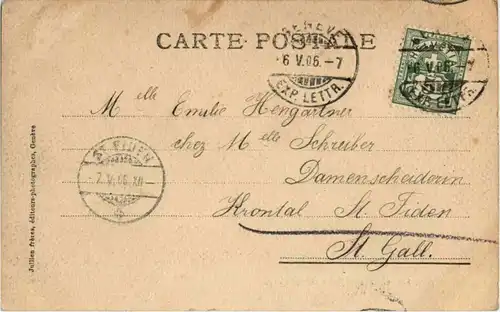 CARTE POSTALE
GENEVE
6 V.06.-7
EXP. LETTR.
GENEVE
6 V.06.-7
EXP. LETTR.
Melle Emilie Hengartner
chez Melle Schreiber
Damenscheiderin
Krontal St. Fiden
St. Gall.
ST. FIDEN
7.V.06.XII
Jullien frères, éditeurs-photographes, Genève